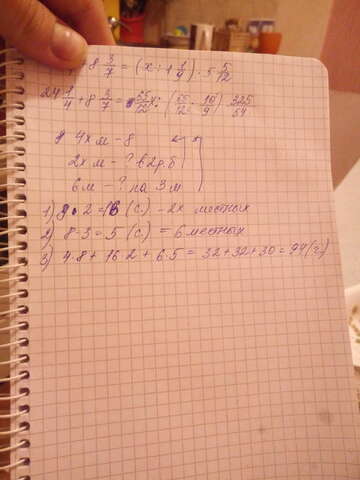 + 8 3/7 = (x : 1 1/9) · 5 5/12
24 1/4 + 8 3/7 = 65/12 · 10/9 325/54
4х м - 8
2х м - ? в 2 р. б
6 м - ? на 3 м
1) 8 · 2 = 16 (с.) - 2х местных
2) 8 - 3 = 5 (с.) = 6 местных
3) 4 · 8 + 16 · 2 + 6 · 5 = 32 + 32 + 30 = 94 (ч)